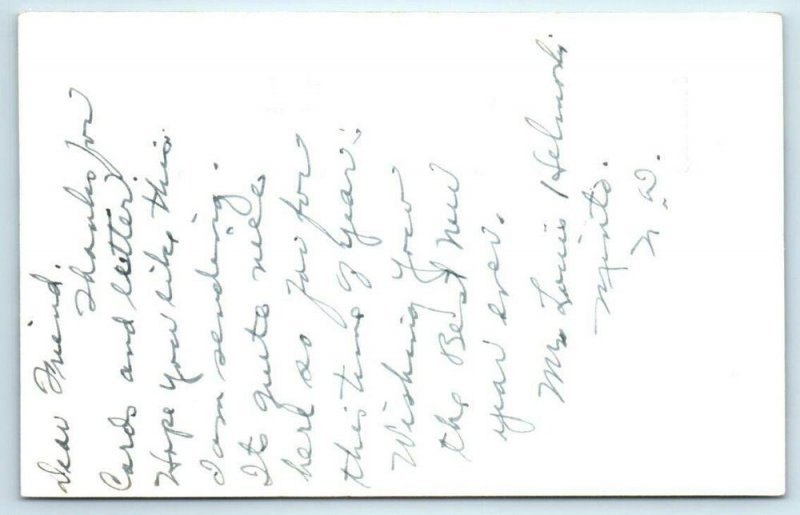 Dear Friend.
Thanks for
Cards and letter
Hope you like this
I am sending.
Its quite nice
here so far for
this time of year.
Wishing you
the Best New
year ever.
Mrs Louis
Minto.
N.D.